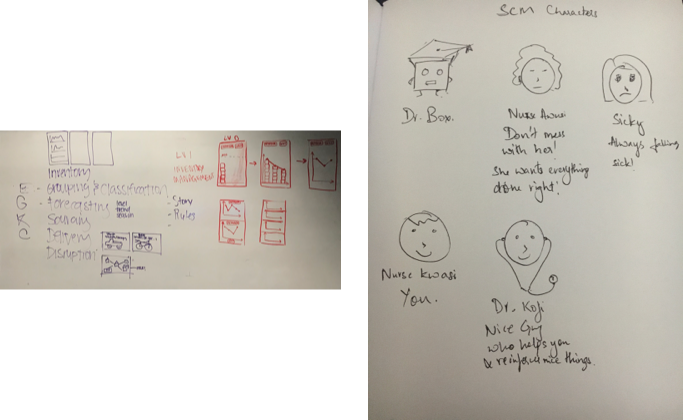 Inventory
E - Grouping & Classification
G - Forecasting
K Scenario
C Delivery
Disruption
- Story
- Rules
LV 1
Inventory
LV 0
SCM Characters
Dr. Box.
Nurse
Don't mess
with her!
She wants everything
done right!
Sicky
Always falling
sick!
Nurse Kwasi
You.
Dr. Koji
Nice Guy
who helps you
& reinforce nice things.